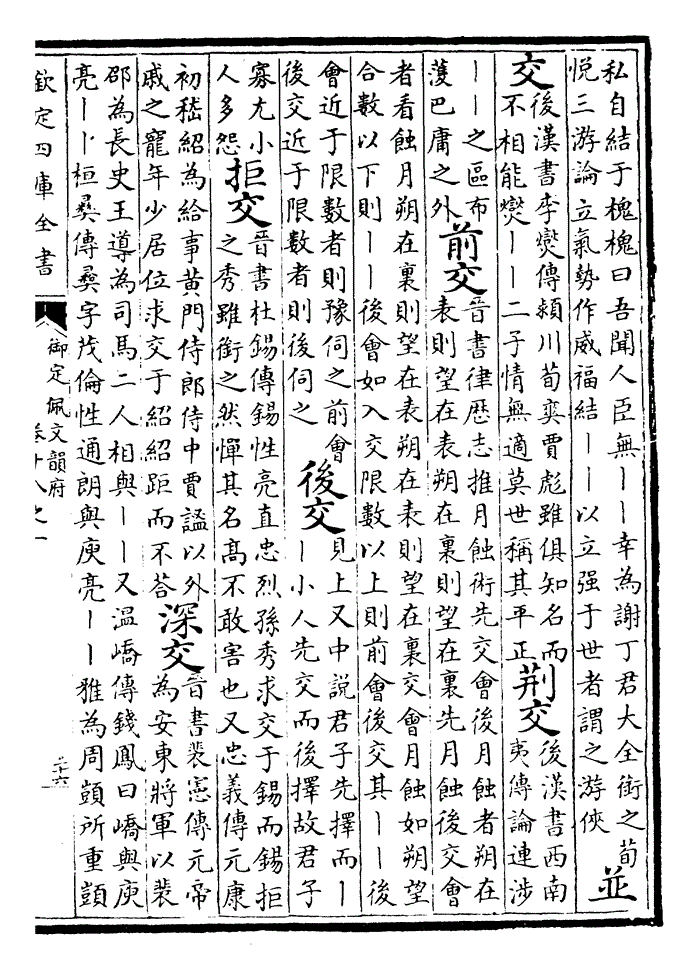 私自結于槐槐曰吾聞人臣無丨丨幸為謝丁君大全銜之荀
悦三游論立氣勢作威福結丨丨以立强于世者謂之游俠
並
交
後漢書李燮傳潁川荀爽賈彪雖俱知名而
不相能燮丨丨二子情無適莫世稱其平正
荆交
後漢書西南
夷傳論連涉
丨丨之區布
濩巴庸之外
前交
晉書律厯志推月蝕術先交會後月蝕者朔在
表則望在表朔在裏則望在裏先月蝕後交會
者看蝕月朔在裏則望在表朔在表則望在裏交會月蝕如朔望
合數以下則丨丨後會如入交限數以上則前會後交其丨丨後
會近于限數者則豫伺之前會
後交近于限數者則後伺之
後交
見上又中説君子先擇而丨
丨小人先交而後擇故君子
寡尤小
人多怨
拒交
晉書杜錫傳錫性亮直忠烈孫秀求交于錫而錫拒
之秀雖銜之然憚其名髙不敢害也又忠義傳元康
初嵇紹為給事黄門侍郎侍中賈謐以外
戚之寵年少居位求交于紹紹距而不答
深交
晉書裴憲傳元帝
為安東將軍以裴
邵為長史王導為司馬二人相與丨丨又温嶠傳錢鳳曰嶠與庾
亮丨丨桓彛傳彛字茂倫性通朗與庾亮丨丨雅為周顗所重顗
欽定四庫全書
御定佩文韻府
卷十八之一
二十六